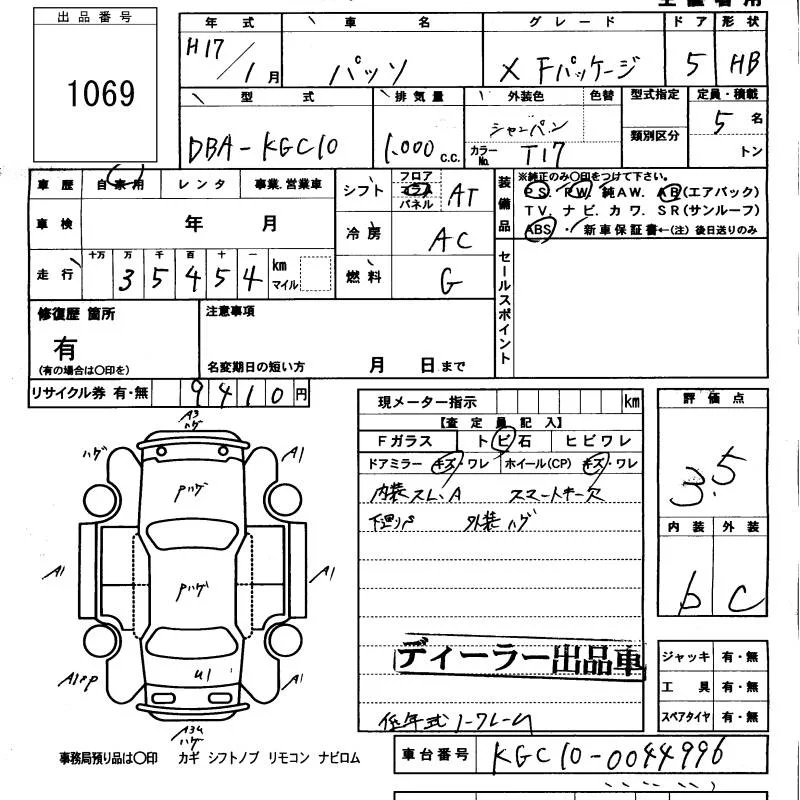 出品番号
1069
年式 車名 グレード ドア 形状
H17/1月 パッソ X Fパッケージ 5 HB
型式 排気量 外装色 色替 型式指定 定員・積載
DBA-KGC10 1,000 c.c. シャンパン カラーNo. T17 類別区分 5名
トン
車歴 自家用 レンタ 事業.営業車
車検 年 月
走行 十万 万 千 百 十 一
3 5 4 5 4 km マイル
シフト フロア コラム パネル AT
冷房 AC
燃料 G
装備品
※純正のみ〇印をつけて下さい。
PS. PW. 純AW. AB(エアバック)
TV. ナビ. カワ. SR(サンルーフ)
ABS ・ 新車保証書←(注)後日送りのみ
セールスポイント
修復歴 箇所
有
(有の場合は〇印を)
注意事項
名変期日の短い方 月 日まで
リサイクル券 有・無 9410円
現メーター指示 km
【査定員記入】
Fガラス トビ石 ヒビワレ
ドアミラー キズ・ワレ ホイール(CP) キズ・ワレ
内装スレ、A スマートキー欠
下廻りP 外装ハゲ
ディーラー出品車
低年式ノークレーム
評価点
3.5
内装 外装
b C
ジャッキ 有・無
工具 有・無
スペアタイヤ 有・無
A3
ハゲ
ハゲ A1
Pハゲ
A1 Pハゲ A1
U1
A1PP A1
ハゲ
事務局預り品は〇印 カギ シフトノブ リモコン ナビロム
車台番号 KGC10-0044996